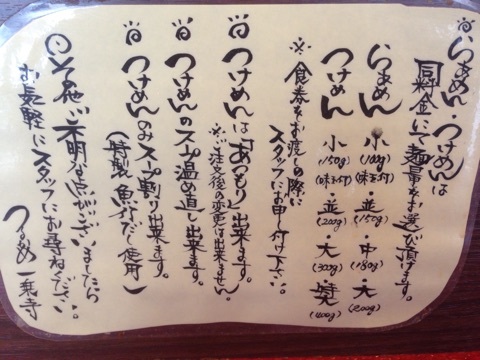 らぁめん・つけめんは
同料金にて麺量をお選び頂けます。
らぁめん 小(100g)(味玉付)・並(150g)・中(180g)・大(200g)
つけめん 小(150g)(味玉付)・並(200g)・大(300g)・(400g)
※食券をお渡しの際に
スタッフにお申し付け下さい。
つけめんは「あつもり」出来ます。
※ご注文後の変更は出来ません。
つけめんのスープ温め直し出来ます。
つけめんのみスープ割り出来ます。
(特製魚介だし使用)
その他ご不明な点がございましたら
お気軽にスタッフにお尋ねください。
つるめ一乗寺